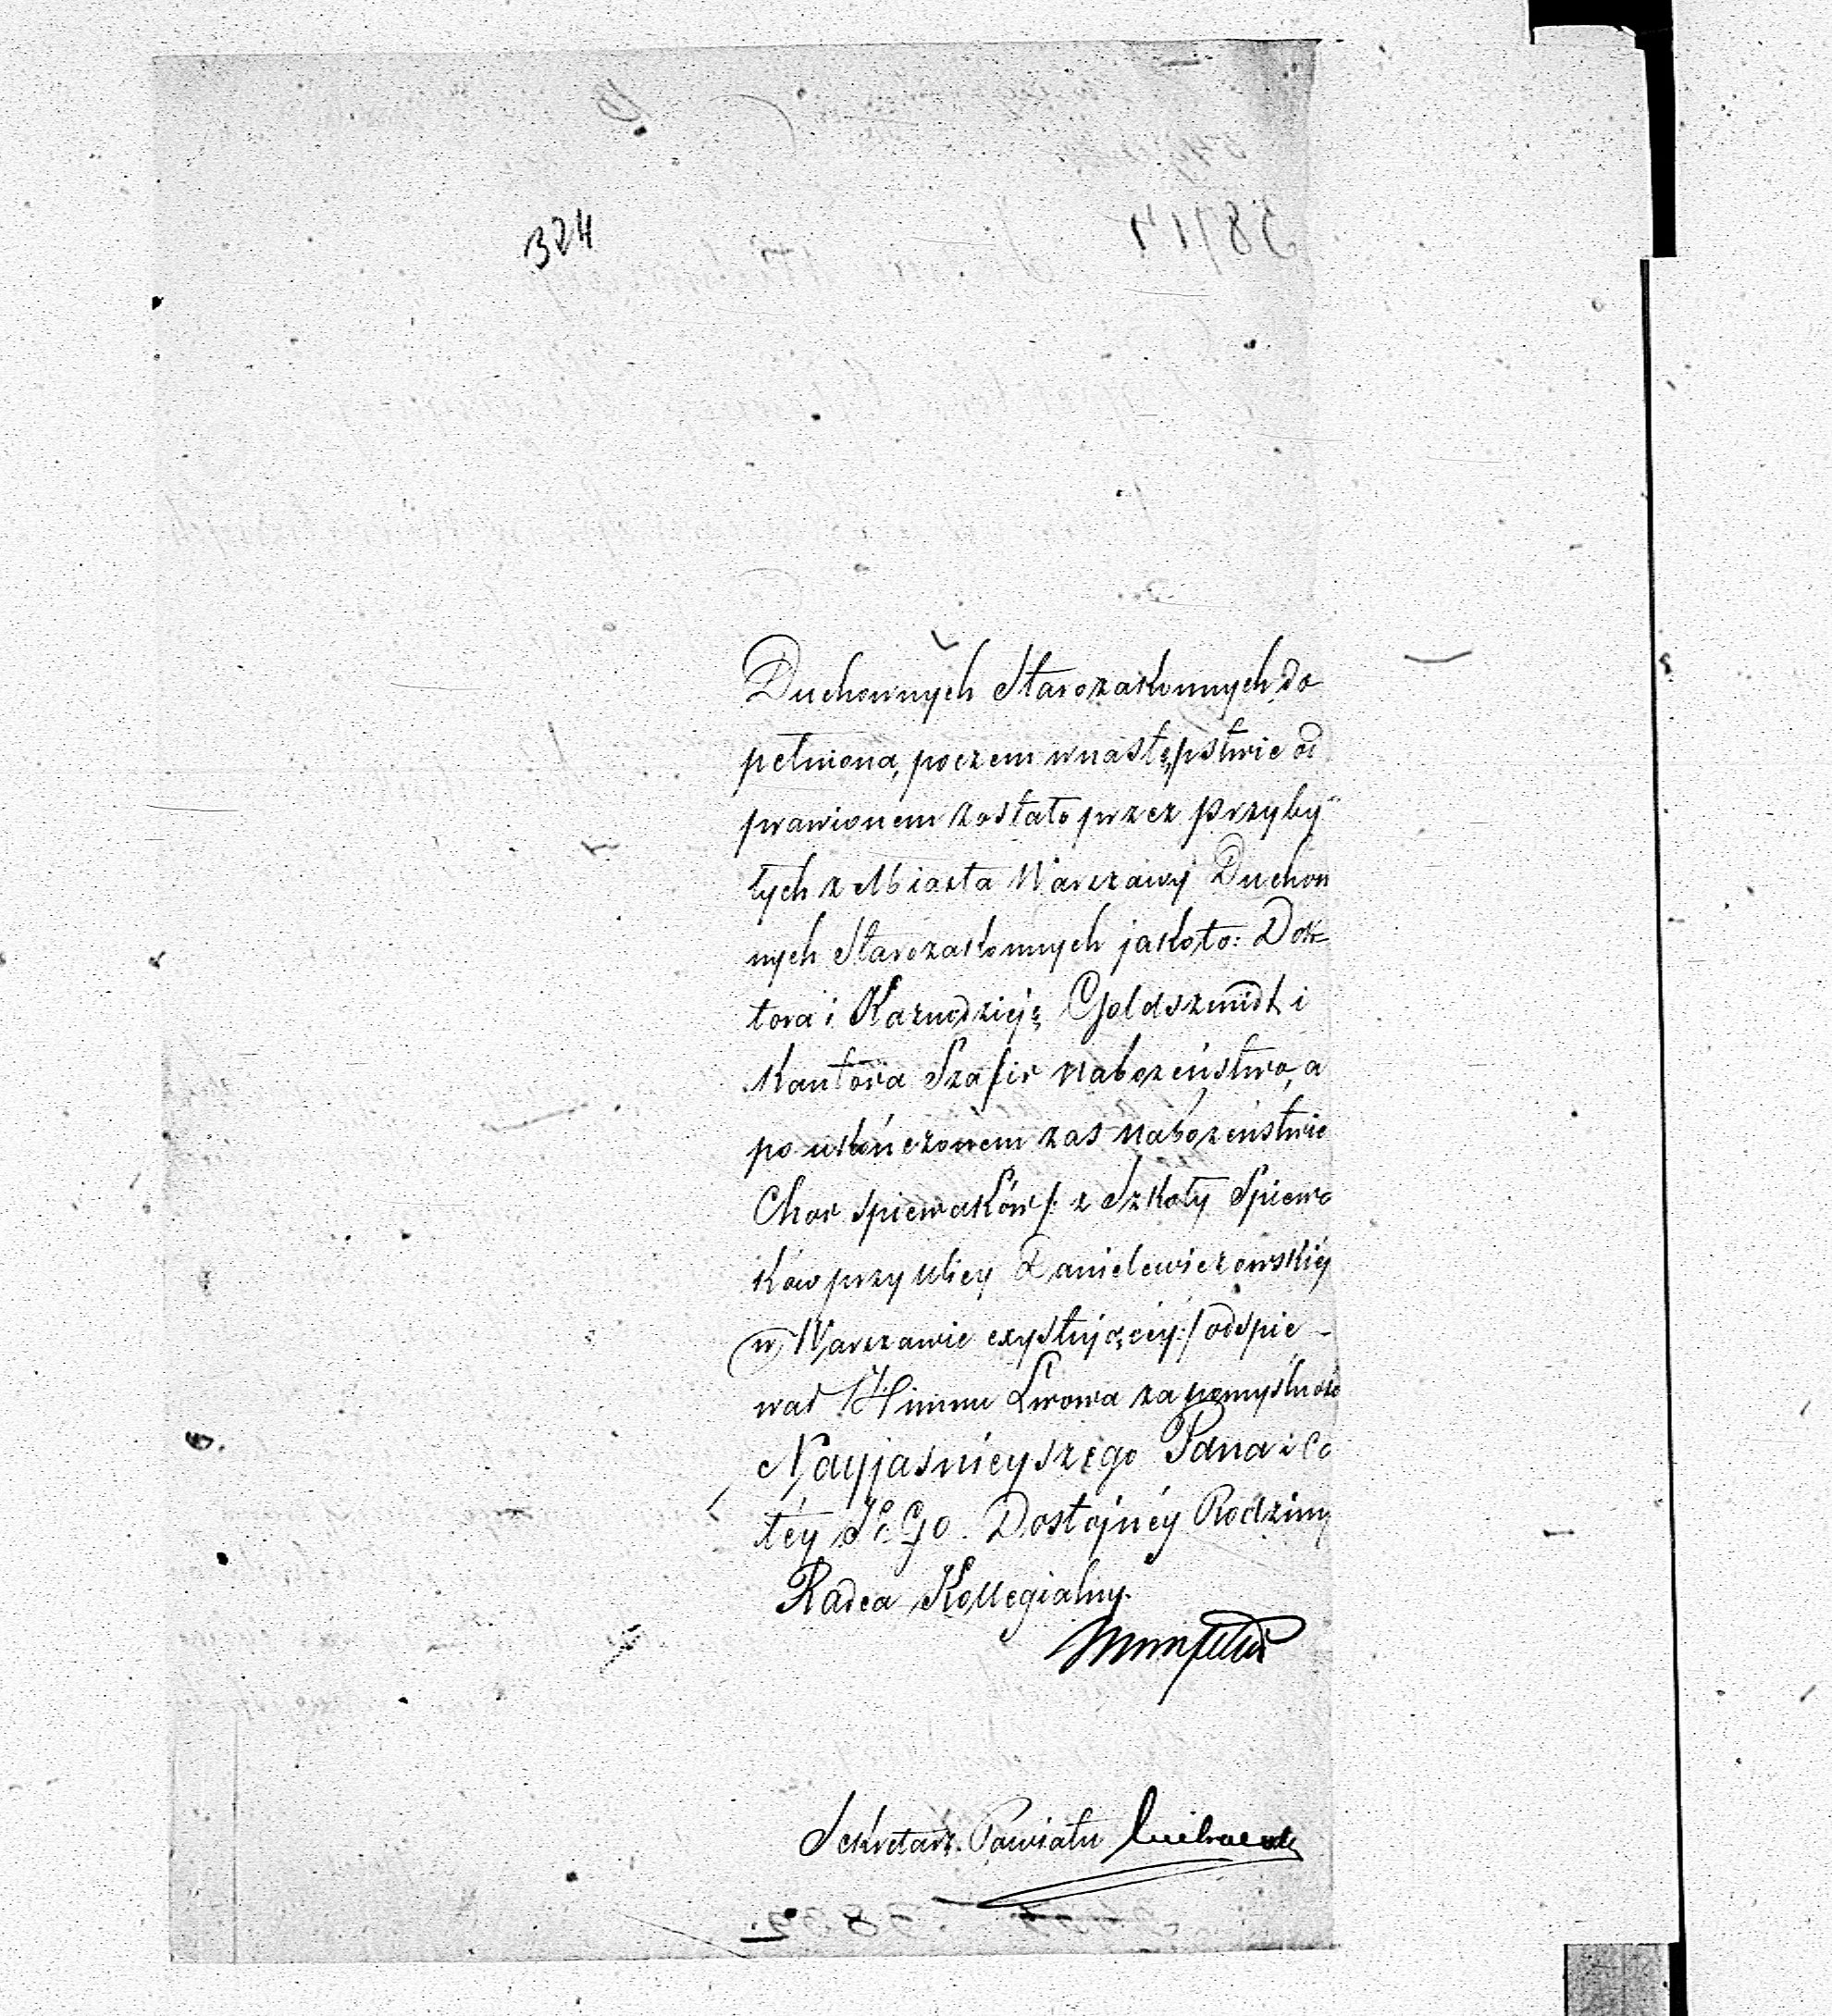 324
Duchownych Starozakonnych do
pełnioną, poczem w następstwie od
prawionem zostało przez przyby-
łych z Miasta Warszawy Duchow
nych Starozakonnych jakoto: Dok-
tora i Kaznodzieję Goldszmidt i
Kantora Szafir Nabożeństwo, a
po ukończonem zas Nabożeństwie
Chor spiewaków /: z Szkoły Spiewa
ków przy ulicy Danielewiczowskiéy
w Warszawie exystującéy :/ odspie-
wał Himnu Lwowa za pomyslność
Nayjasnieyszego Pana i Ca
łéy JeGo Dostojnéy Rodziny
Radca Kollegialny.
Sekretarz Powiatu